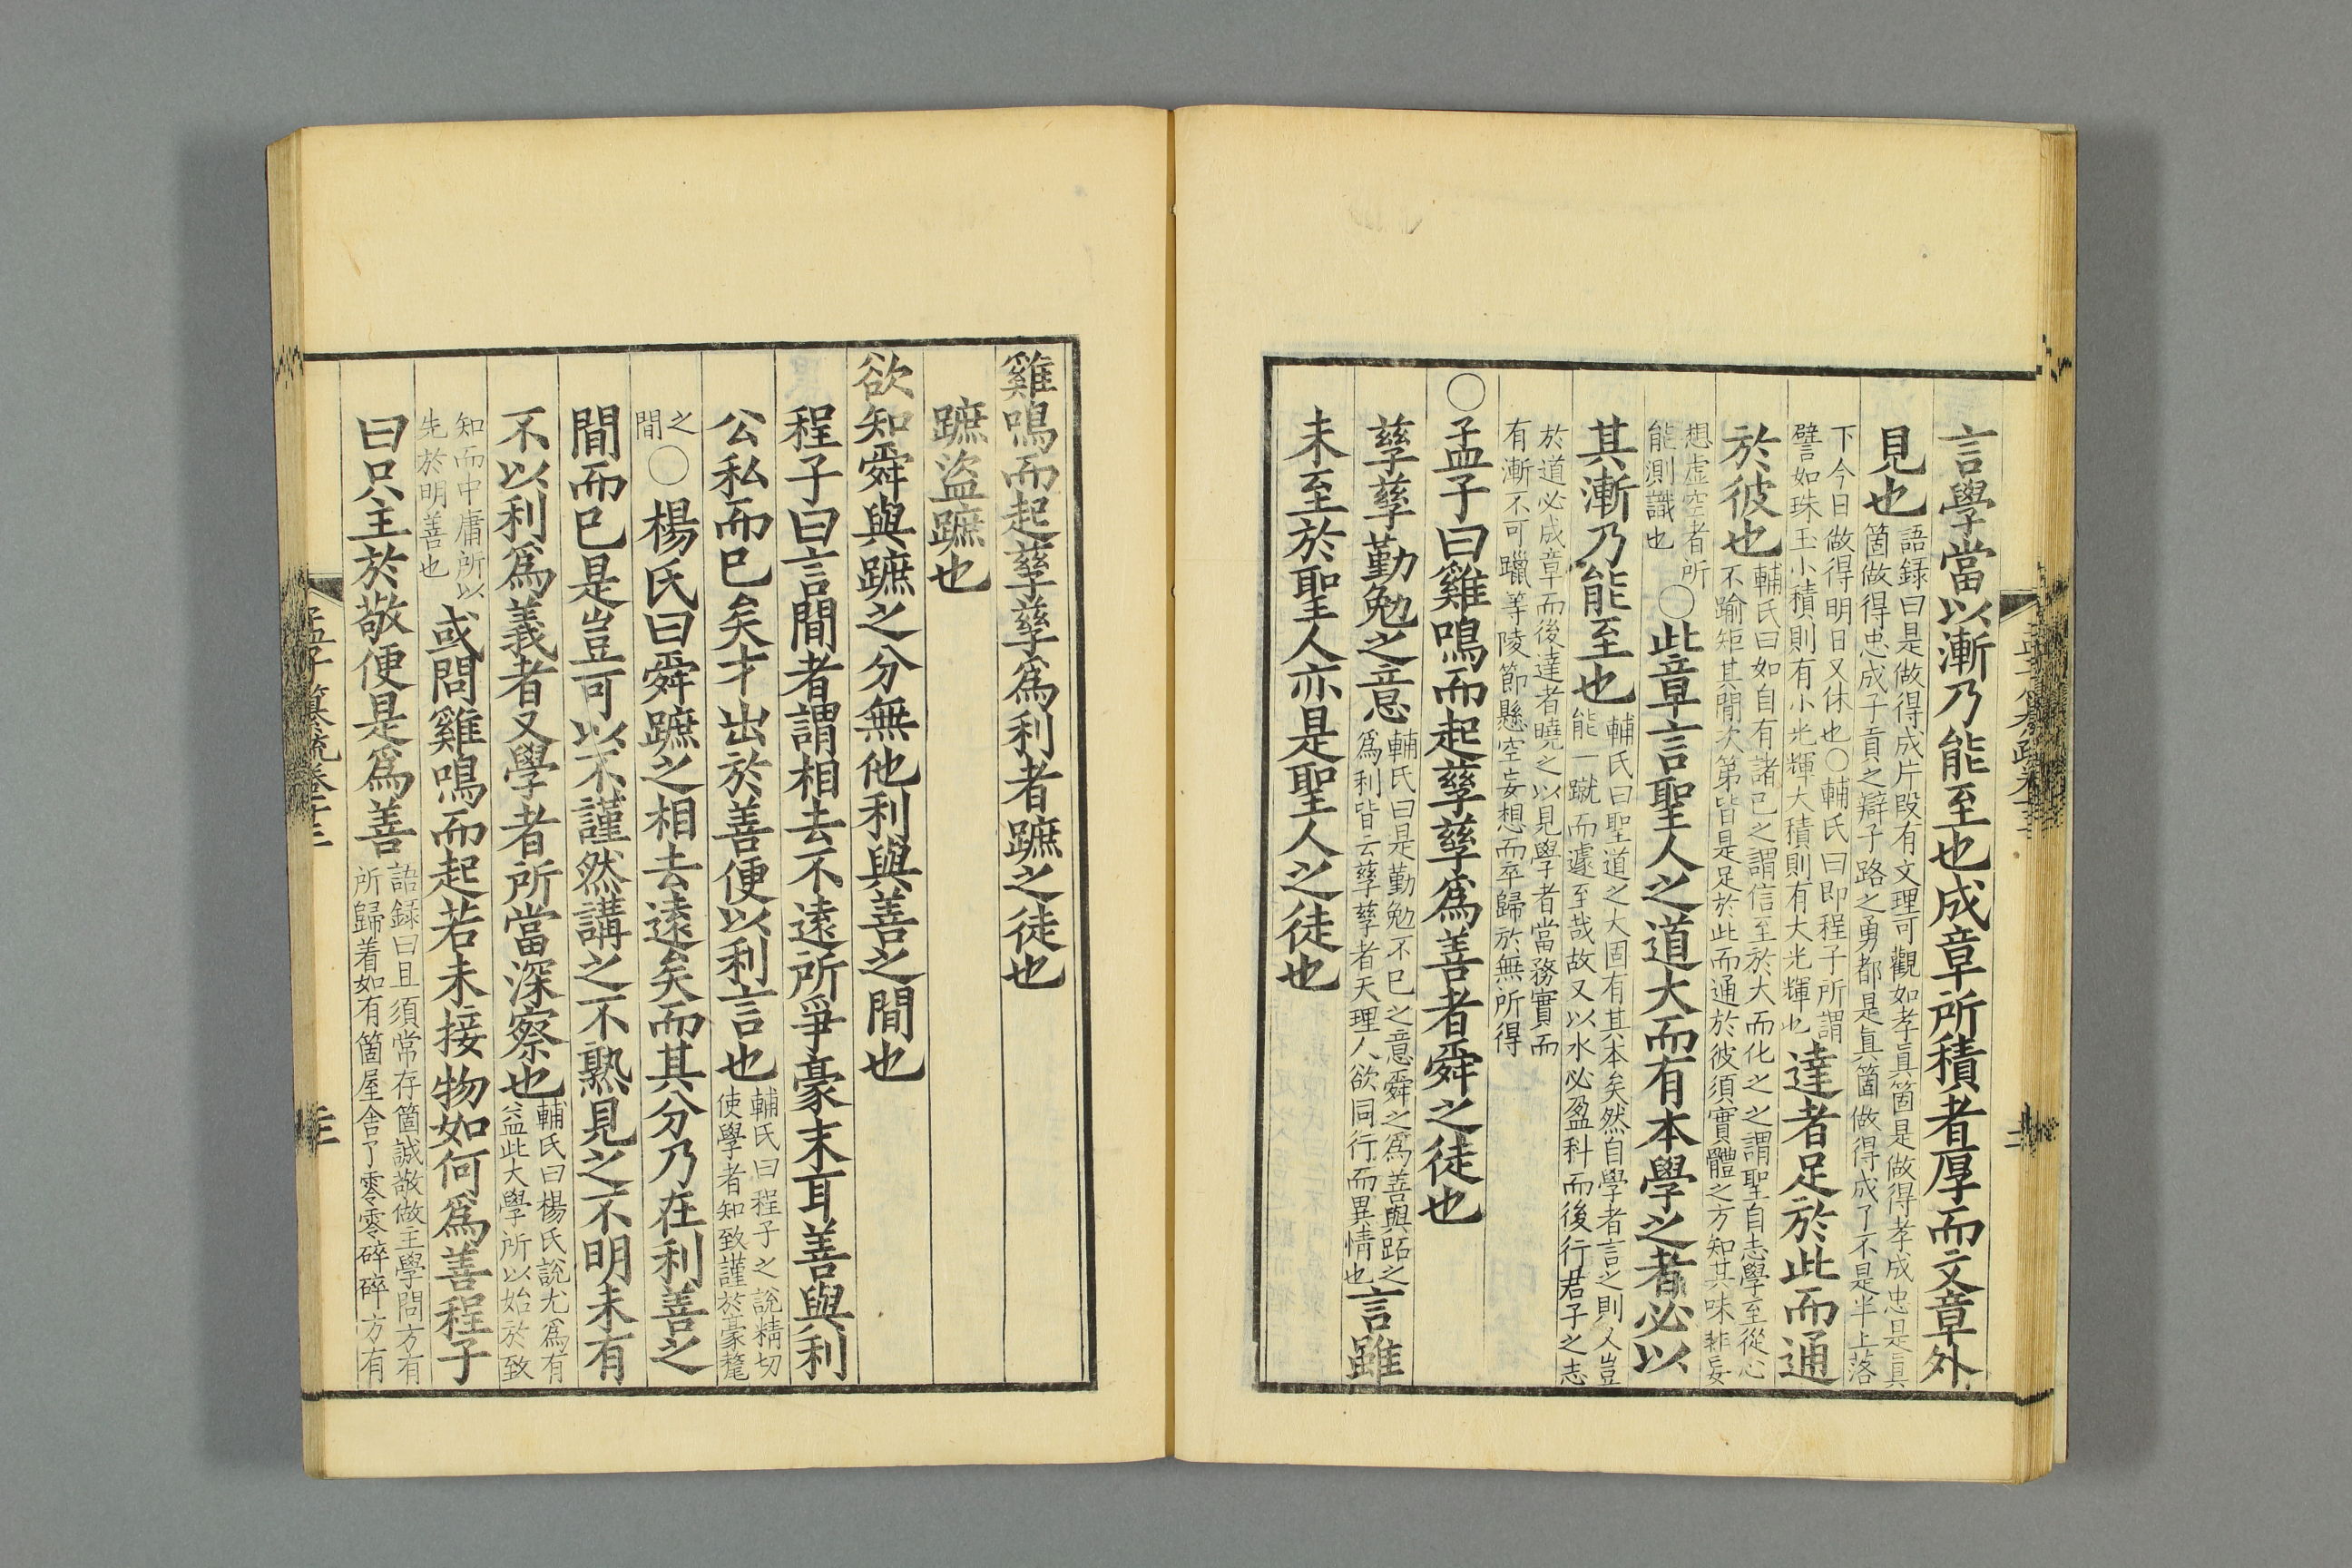 言學當以漸乃能至也成章所積者厚而文章外
見也語録曰是做得成片段有文理可觀如孝真箇是做得孝成忠是真
箇做得忠成子貢之辯子路之勇都是真箇做得成了不是半上落
下今日做得明日又休也○輔氏曰即程子所謂
譬如珠玉小積則有小光輝大積則有大光輝也達者足於此而通
於彼也輔氏曰如自有諸己之謂信至於大而化之之謂聖自志學至從心
不踰矩其間次第皆是足於此而通於彼須實體之方知其味非妄
想虚空者所
能測識也○此章言聖人之道大而有本學之者必以
其漸乃能至也輔氏曰聖道之大固有其本矣然自學者言之則又豈
能一蹴而遽至哉故又以水必盈科而後行君子之志
於道必成章而後達者曉之以見學者當務實而
有漸不可躐等陵節懸空妄想而卒歸於無所得
○孟子曰雞鳴而起孳孳爲善者舜之徒也
孳孳勤勉之意輔氏曰是勤勉不已之意舜之爲善與跖之
爲利皆云孳孳者天理人欲同行而異情也言雖
未至於聖人亦是聖人之徒也
雞鳴而起孳孳爲利者蹠之徒也
蹠盜蹠也
欲知舜與蹠之分無他利與善之間也
程子曰言間者謂相去不遠所爭豪末耳善與利
公私而已矣才出於善便以利言也輔氏曰程子之說精切
使學者知致謹於豪氂
之
間○楊氏曰舜蹠之相去遠矣而其分乃在利善之
間而已是豈可以不謹然講之不熟見之不明未有
不以利爲義者又學者所當深察也輔氏曰楊氏說尤爲有
益此大學所以始於致
知而中庸所以
先於明善也或問雞鳴而起若未接物如何爲善程子
曰只主於敬便是爲善語録曰且須常存箇誠敬做主學問方有
所歸着如有箇屋舍了零零碎碎方有
孟子纂疏卷十三